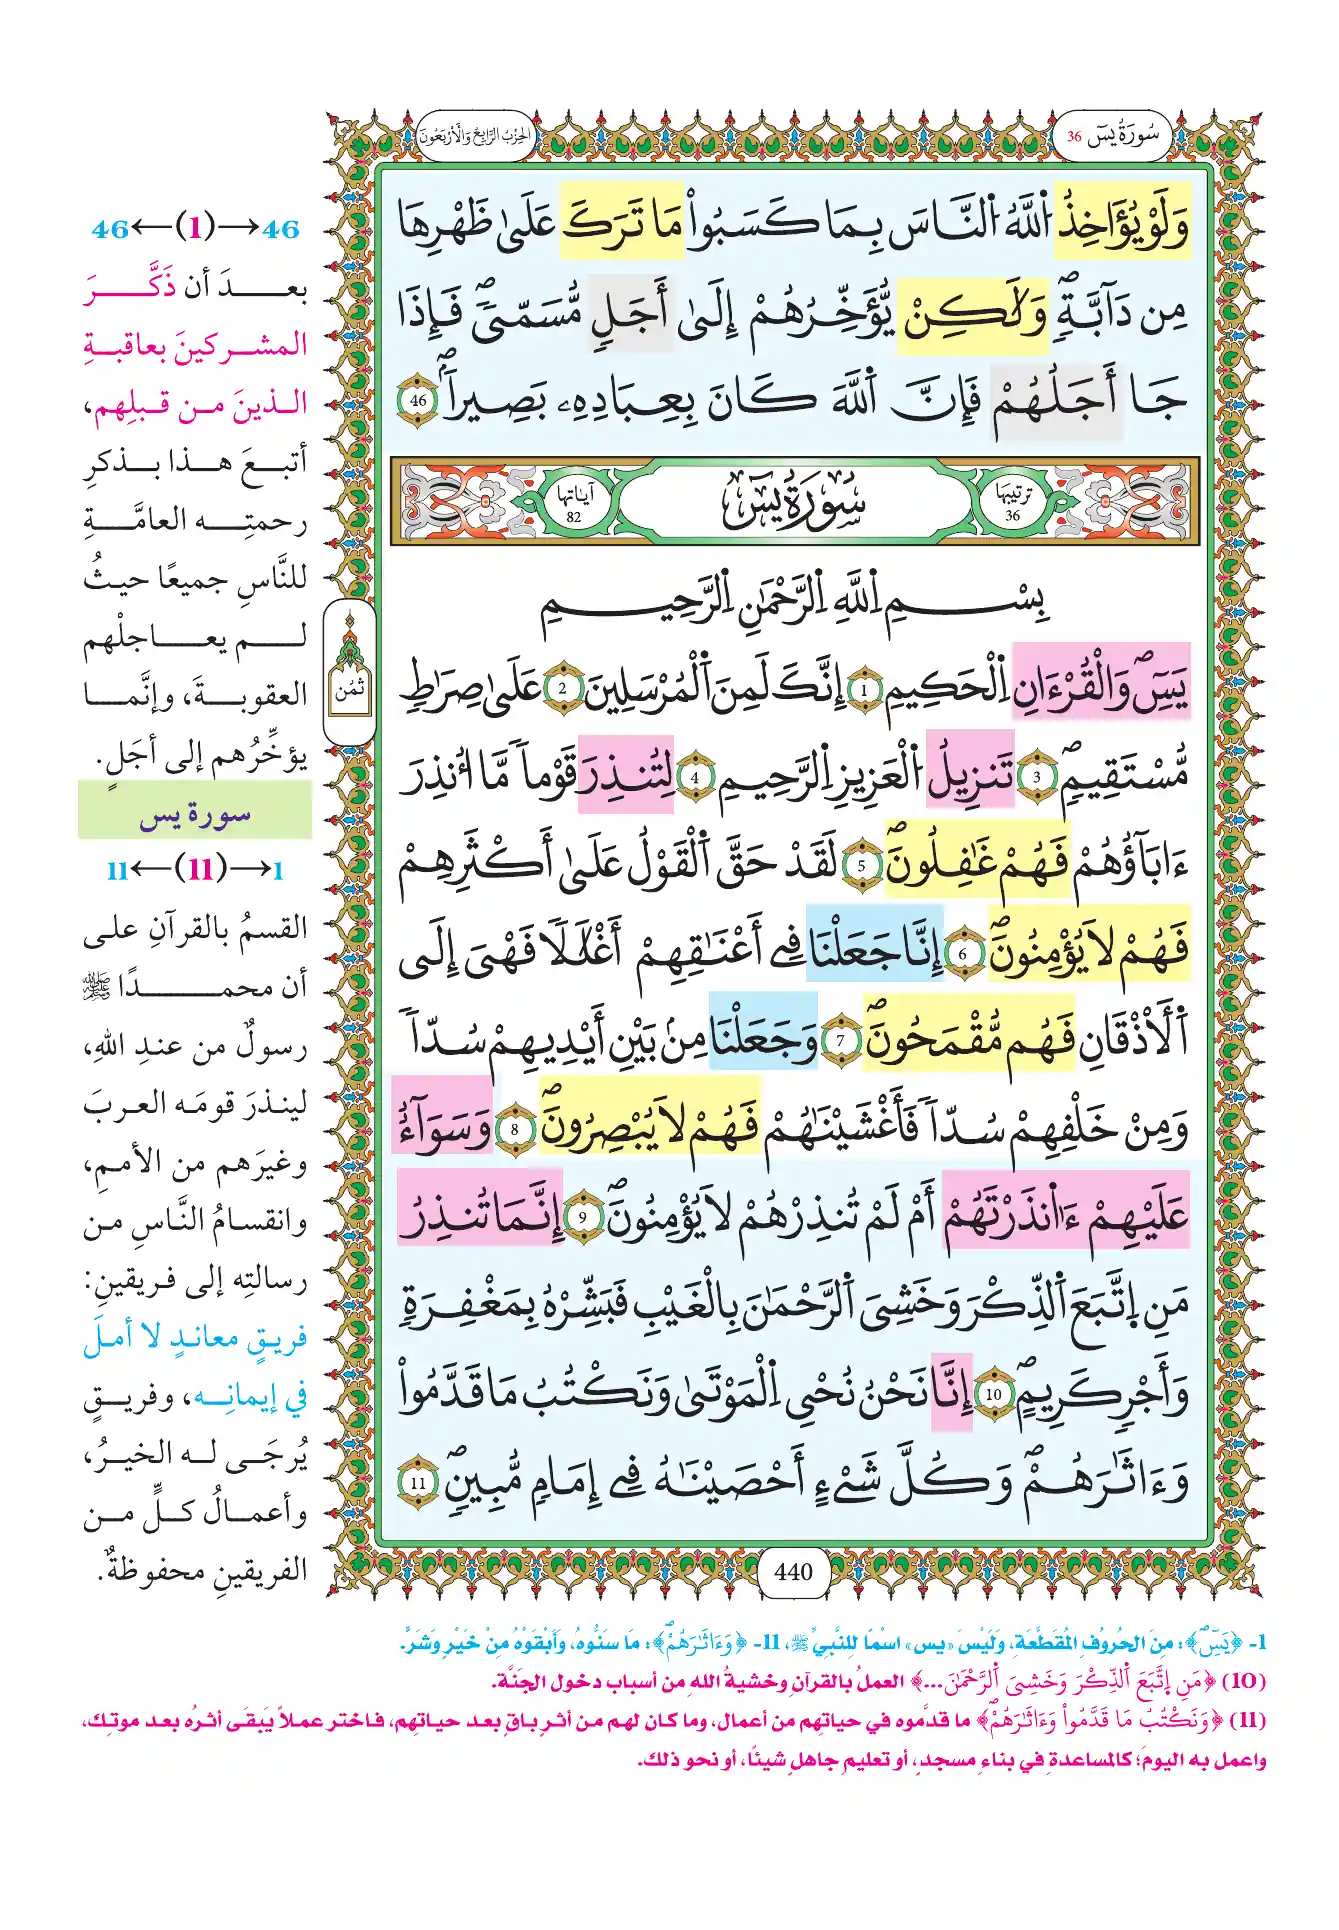 سُورَةُ يسٓ 36
الحِزْبُ الرَّابِعُ وَالْأَرْبَعُونَ
وَلَوْ يُؤَاخِذُ اُ۬للَّهُ اُ۬لنَّاسَ بِمَا كَسَبُواْ مَا تَرَكَ عَلَىٰ ظَهْرِهَا
مِن دَآبَّةٖۖ وَلَٰكِنْ يُّؤَخِّرُهُمْ إِلَىٰٓ أَجَلٖ مُّسَمّىٗۖ فَإِذَا
جَا أَجَلُهُمْ فَإِنَّ اَ۬للَّهَ كَانَ بِعِبَادِهِۦ بَصِيراٗۖ 46
ترتيبها 36
سُورَةُ يسٓ
آياتها 82
بِسْمِ اِ۬للَّهِ اِ۬لرَّحْمَٰنِ اِ۬لرَّحِيمِ
يَسِٓۖ وَالْقُرْءَانِ اِ۬لْحَكِيمِ 1 إِنَّكَ لَمِنَ اَ۬لْمُرْسَلِينَ 2 عَلَىٰ صِرَاطٖ
مُّسْتَقِيمٖۖ 3 تَنزِيلُ اُ۬لْعَزِيزِ اِ۬لرَّحِيمِ 4 لِتُنذِرَ قَوْماٗ مَّا أُنذِرَ
ءَابَآؤُهُمْ فَهُمْ غَٰفِلُونَۖ 5 لَقَدْ حَقَّ اَ۬لْقَوْلُ عَلَىٰٓ أَكْثَرِهِمْ
فَهُمْ لَا يُؤْمِنُونَۖ 6 إِنَّا جَعَلْنَا فِے أَعْنَٰقِهِمْ أَغْلَٰلاٗ فَهْىَ إِلَى
اَ۬لْأَذْقَانِ فَهُم مُّقْمَحُونَۖ 7 وَجَعَلْنَا مِنۢ بَيْنِ أَيْدِيهِمْ سُدّاٗ
وَمِنْ خَلْفِهِمْ سُدّاٗ فَأَغْشَيْنَٰهُمْ فَهُمْ لَا يُبْصِرُونَۖ 8 وَسَوَآءٌ
عَلَيْهِمْ ءَا۬نذَرْتَهُمْ أَمْ لَمْ تُنذِرْهُمْ لَا يُؤْمِنُونَۖ 9 إِنَّمَا تُنذِرُ
مَنِ اِ۪تَّبَعَ اَ۬لذِّكْرَ وَخَشِىَ اَ۬لرَّحْمَٰنَ بِالْغَيْبِ فَبَشِّرْهُ بِمَغْفِرَةٖ
وَأَجْرٖ كَرِيمٍۖ 10 إِنَّا نَحْنُ نُحْىِ اِ۬لْمَوْتَىٰ وَنَكْتُبُ مَا قَدَّمُواْ
وَءَاثَٰرَهُمْۖ وَكُلَّ شَےْءٍ أَحْصَيْنَٰهُ فِے إِمَامٖ مُّبِينٖۖ 11
ثُمُن
440
46←(1)→46
بعدَ أن ذَكَّرَ
المشركينَ بعاقبةِ
الذينَ من قبلِهم،
أتبعَ هذا بذكرِ
رحمتِه العامَّةِ
للنَّاسِ جميعًا حيثُ
لم يعاجلْهم
العقوبةَ، وإنَّما
يؤخِّرُهم إلى أجَلٍ.
سورة يس
1←(11)→11
القسمُ بالقرآنِ على
أن محمدًا ﷺ
رسولٌ من عندِ اللهِ،
لينذرَ قومَه العربَ
وغيرَهم من الأممِ،
وانقسامُ النَّاسِ من
رسالتِه إلى فريقينِ:
فريقٍ معاندٍ لا أملَ
في إيمانِه، وفريقٍ
يُرجَى له الخيرُ،
وأعمالُ كلٍّ من
الفريقينِ محفوظةٌ.
1- ﴿يَسِٓۖ﴾: مِنَ الحُرُوفِ المُقَطَّعَةِ، وَلَيْسَ «يس» اسْمًا لِلنَّبِيِّ ﷺ، 11- ﴿وَءَاثَٰرَهُمْۖ﴾: مَا سَنُّوهُ، وَأَبْقَوْهُ مِنْ خَيْرٍ وَشَرٍّ.
(10) ﴿مَنِ اِ۪تَّبَعَ اَ۬لذِّكْرَ وَخَشِىَ اَ۬لرَّحْمَٰنَ...﴾ العملُ بالقرآنِ وخشيةُ اللهِ من أسباب دخول الجَنَّة.
(11) ﴿وَنَكْتُبُ مَا قَدَّمُواْ وَءَاثَٰرَهُمْۖ﴾ ما قدَّموه في حياتهم من أعمال، وما كان لهم من أثرٍ باقٍ بعد حياتهم، فاختر عملاً يَبقَى أثرُه بعد موتِك،
واعمل به اليومَ؛ كالمساعدةِ في بناءِ مسجدٍ، أو تعليمِ جاهلٍ شيئًا، أو نحو ذلك.